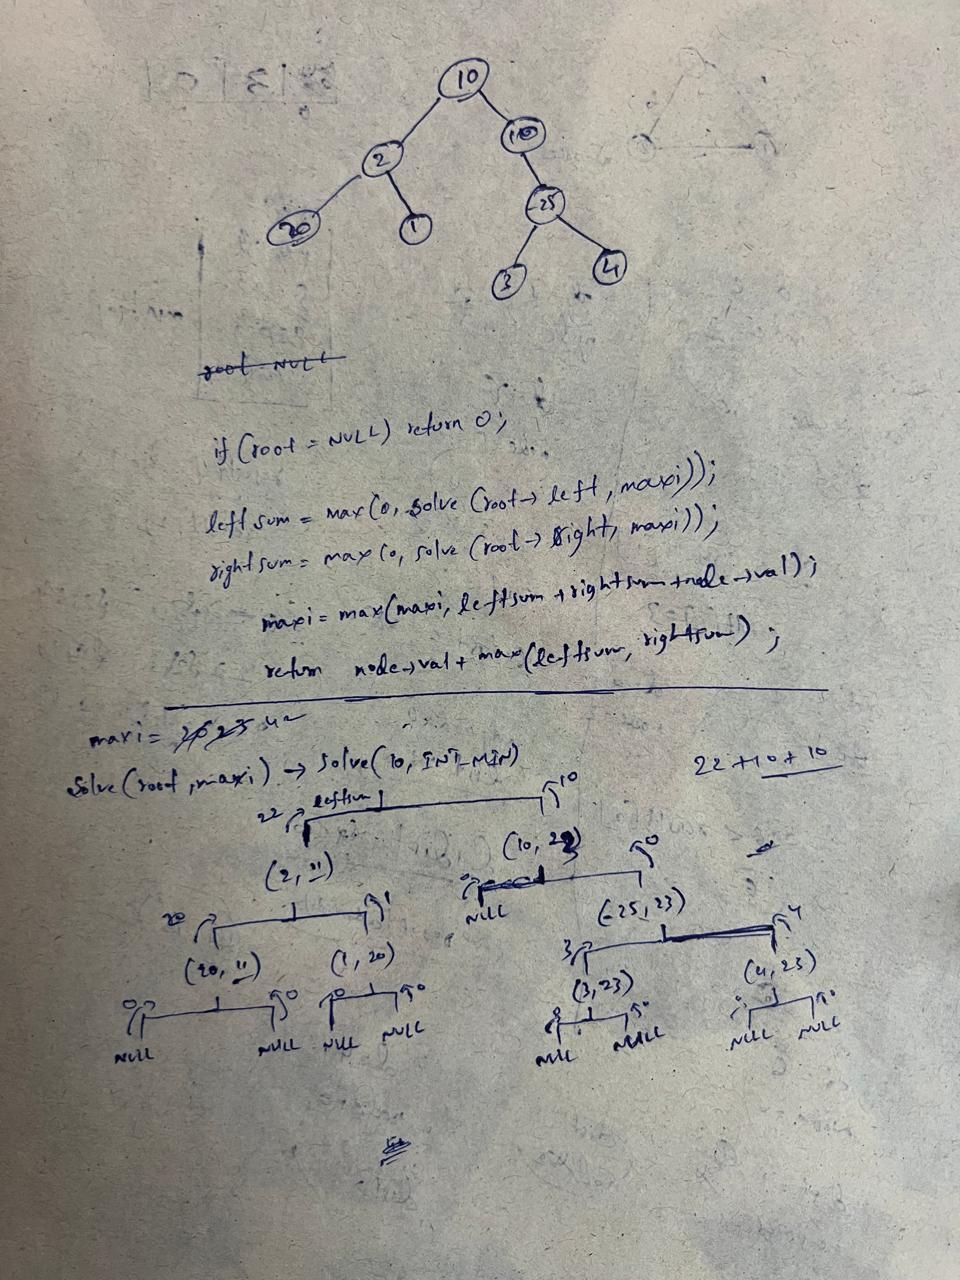 10
2
10
20
1
-25
3
4
root NULL
if (root = NULL) return 0;
left sum = max(0, solve (root→ left, maxi));
right sum = max(0, solve (root→ right, maxi));
maxi = max(maxi, leftsum + rightsum + node→val);
return node→val + max(leftsum, rightsum) ;
maxi = 23 42
solve(root, maxi) → solve(10, INT_MIN)
22 + 10 + 10
22 leftsum 10
(2, ") (10, 23) 0
20 1 0 NULL (-25, 23)
(20, ") (1, 20) 3 4
0 0 0 0 (3, 23) (4, 23)
NULL NULL NULL NULL 0 0 0
NULL NULL NULL NULL